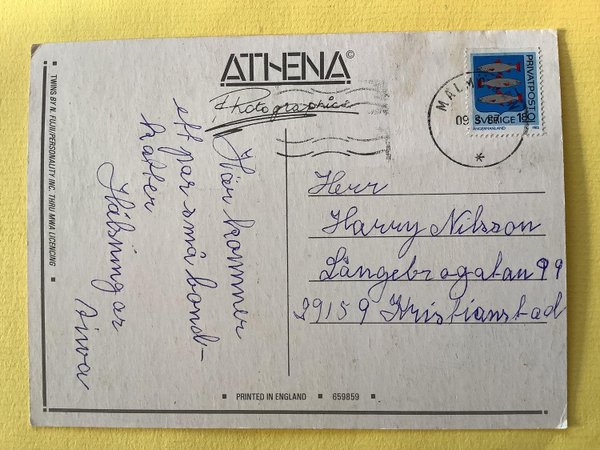 ATHENA©
Photographica
TWINS BY N. FUJII/PERSONALITY INC. THRU MWA LICENCING
Här kommer
ett par små bond-
katter
Hälsningar
Siwa
MALMÖ
09 3-87
PRIVATPOST
SVERIGE
ÅNGERMANLAND
1985
Herr
Harry Nilsson
Långebrogatan 99
29159 Kristianstad
PRINTED IN ENGLAND
659859